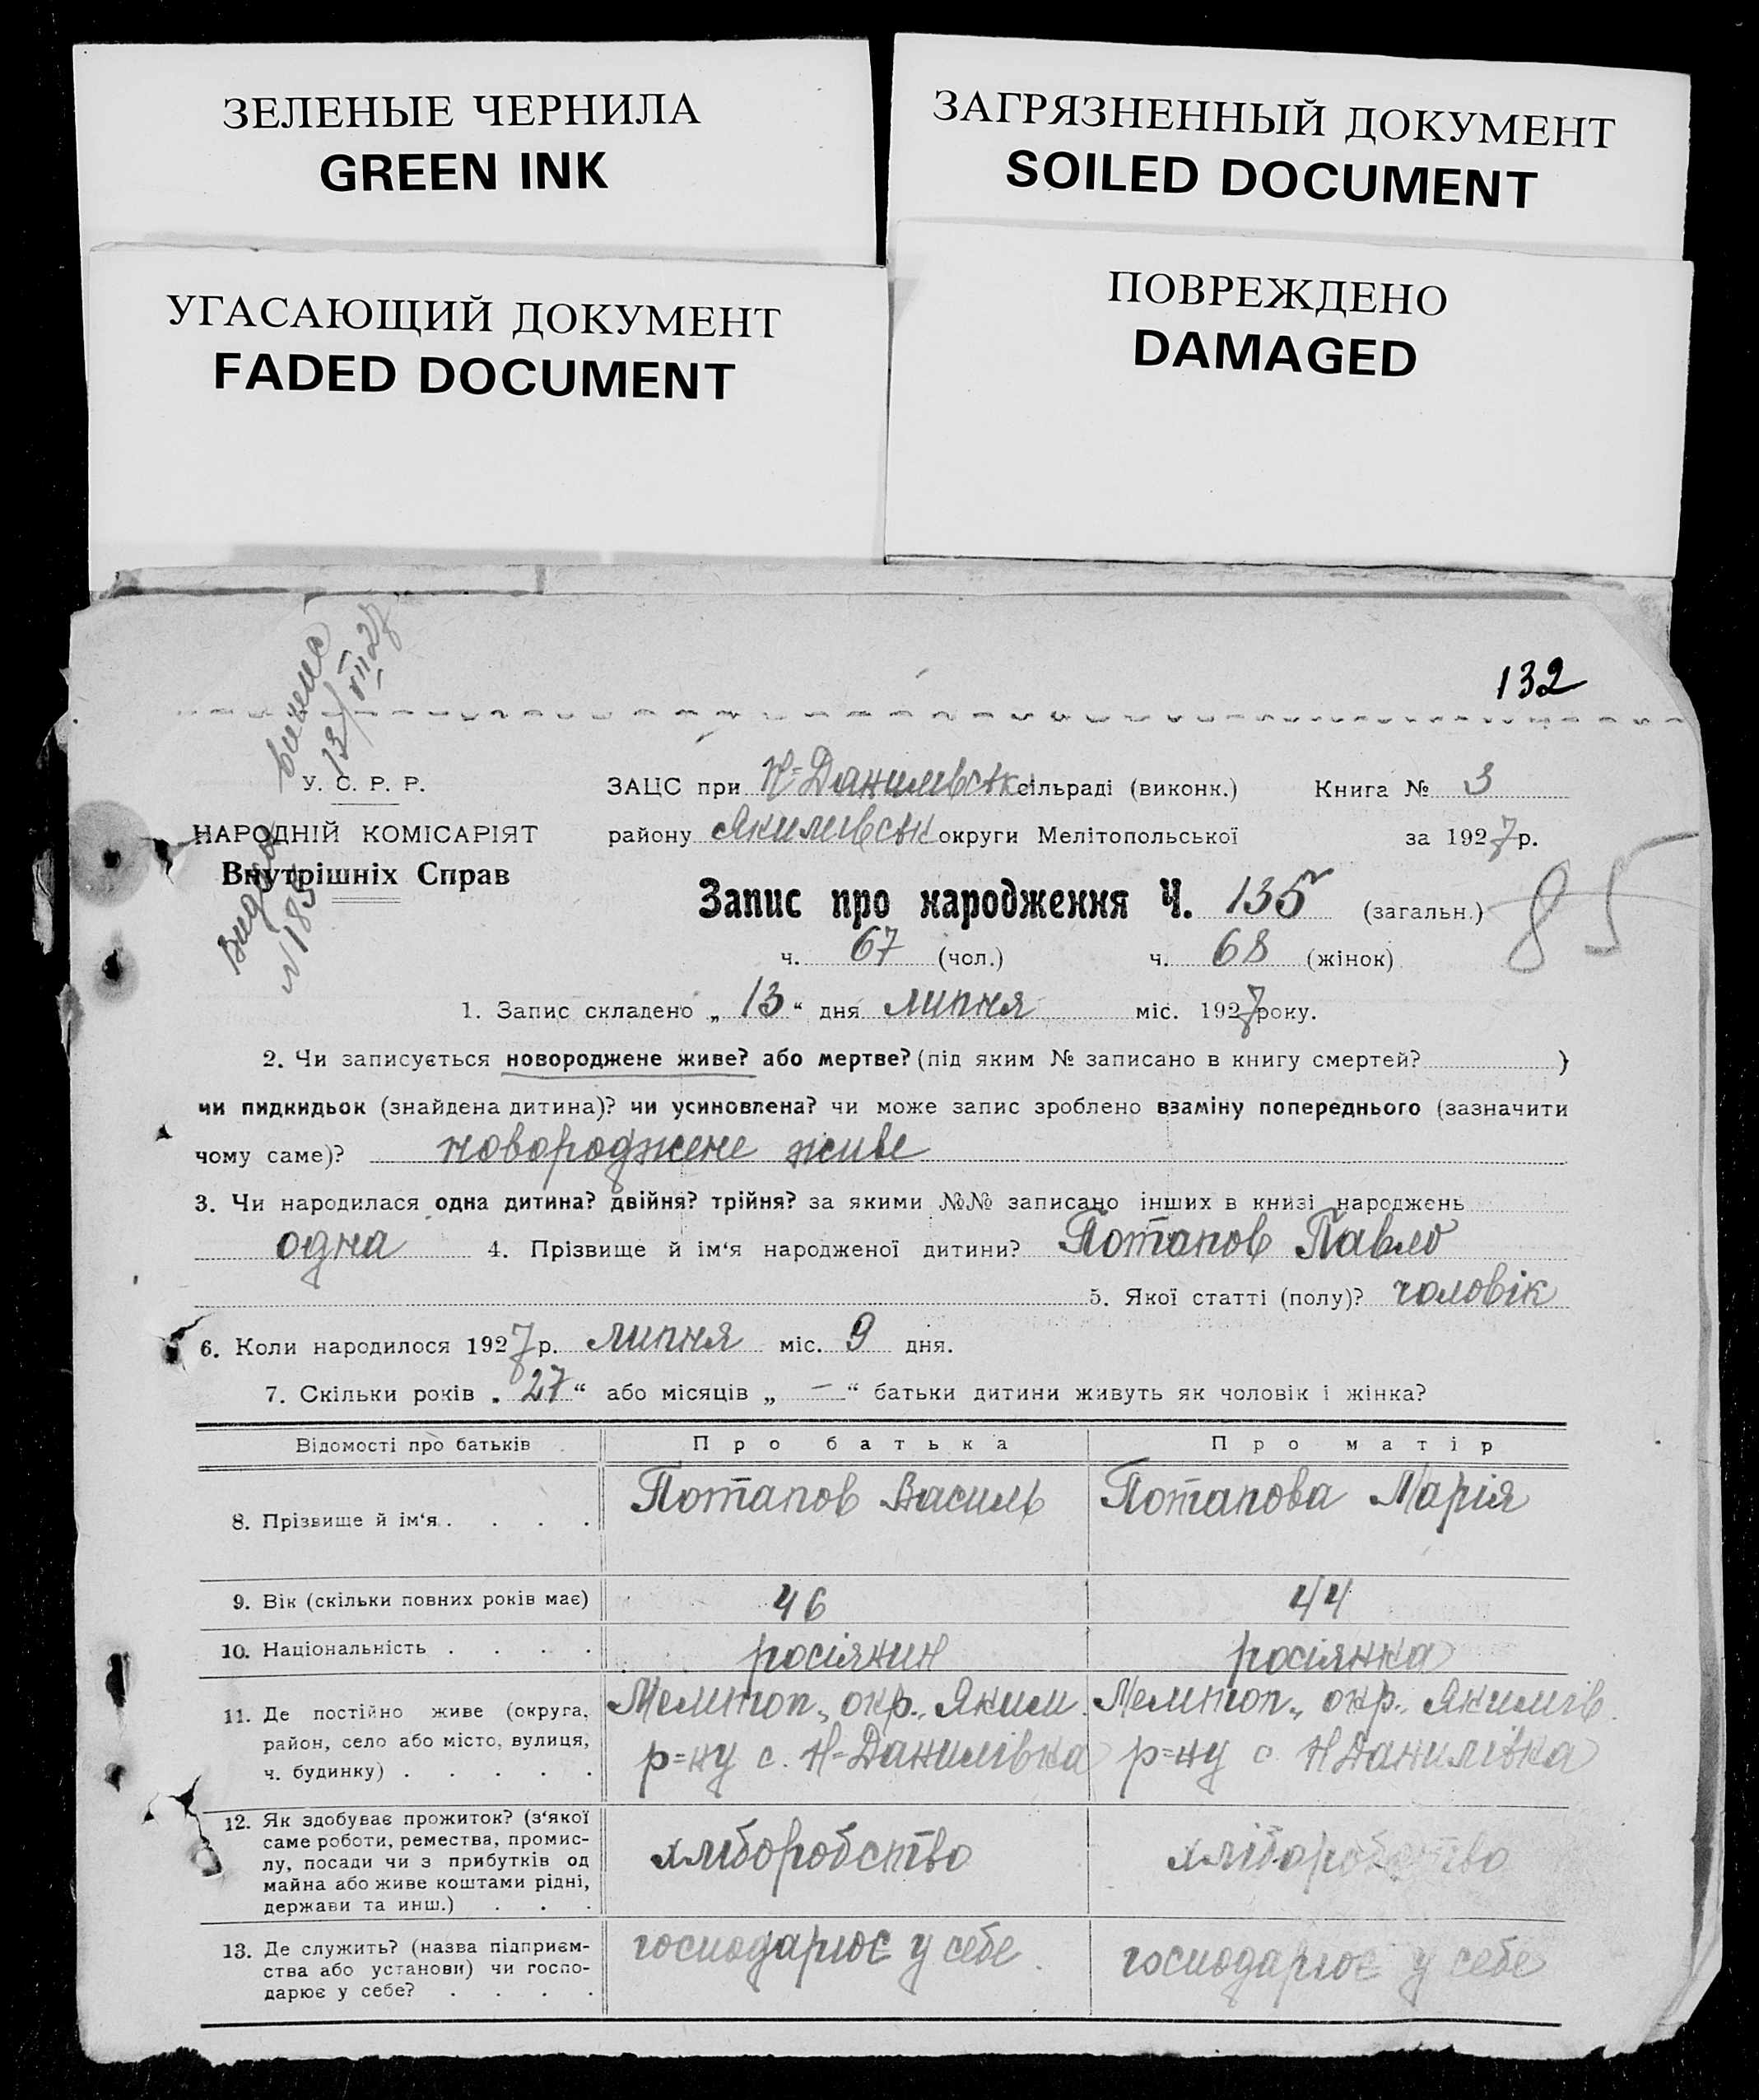 ЗЕЛЕНЫЕ ЧЕРНИЛА
GREEN INK
ЗАГРЯЗНЕННЫЙ ДОКУМЕНТ
SOILED DOCUMENT
УГАСАЮЩИЙ ДОКУМЕНТ
FADED DOCUMENT
ПОВРЕЖДЕНО
DAMAGED
132
13/VII 27
У. С. Р. Р.
НАРОДНІЙ КОМІСАРІЯТ
Внутрішніх Справ
№ 185
ЗАЦС при Н-Данилівськ сільраді (виконк.) Книга № 3
району Якимівськ округи Мелітопольської за 1927 р.
Запис про народження Ч. 135 (загальн.) 85
ч. 67 (чол.) ч. 68 (жінок)
1. Запис складено „ 13 “ дня липня міс. 1927 року.
2. Чи записується новороджене живе? або мертве? (під яким № записано в книгу смертей? )
чи пидкидьок (знайдена дитина)? чи усиновлена? чи може запис зроблено взаміну попереднього (зазначити
чому саме)? новороджене живе
3. Чи народилася одна дитина? двійня? трійня? за якими №№ записано інших в книзі народжень
одна 4. Прізвище й ім‘я народженої дитини? Потапов Павло
5. Якої статті (полу)? чоловік
6. Коли народилося 1927 р. липня міс. 9 дня.
7. Скільки років „ 27 “ або місяців „ — “ батьки дитини живуть як чоловік і жінка?
Відомості про батьків Про батька Про матір
8. Прізвище й ім‘я . . . . Потапов Василь Потапова Марія
9. Вік (скільки повних років має) 46 44
10. Національність . . . . росіянин росіянка
11. Де постійно живе (округа,
район, село або місто, вулиця,
ч. будинку) . . . . .
Мелітоп., окр., Яким.
р=ну с. Н-Данилівка
Мелітоп., окр., Якимів.
р=ну с Н Данилівка
12. Як здобуває прожиток? (з‘якої
саме роботи, ремества, промис-
лу, посади чи з прибутків од
майна або живе коштами рідні,
держави та инш.) . . .
хліборобство
хліборобство
13. Де служить? (назва підприєм-
ства або установи) чи госпо-
дарює у себе? . . . .
господарює у себе
господарює у себе